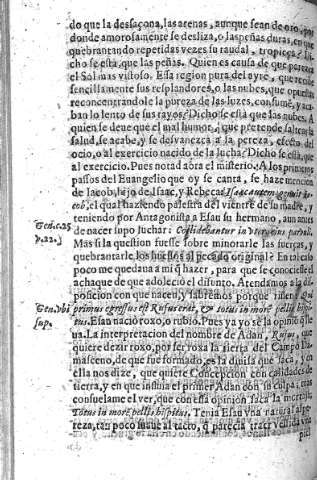 do que la desaçona, las arenas, aunque sean de oro, por
donde amorosamente se desliza, o las peñas duras, en que
quebrantando repetidas vezes su raudal, tropieça? Di-
cho se está, que las peñas. Quien es causa de que parezca
el Sol mas vistoso. Essa region pura del ayre, que recibe
sencillamente sus resplandores, o las nubes, que opuestas
reconcentrandole la pureza de los luzes, consumē, y aca-
ban lo lento de sus rayos? Dicho se está que las nubes. A
quien se deve que el mal humor, que pretende saltear la
salud, se acabe, y se desvanezca a la pereza, efecto del
ocio, o al exercicio nacido de la lucha? Dicho se está, que
al exercicio. Pues notad aora el misterio. A los primeros
passos del Evangelio que oy se canta, se haze mencion
de Iacob, hijo de Isac, y Rebeca: Isaac autem genuit Ia-
cob, el qual haziendo palestra del vientre de su madre, y
teniendo por Antagonista a Esau su hermano, aun antes
Genes. 25 de nacer supo luchar: Collidebantur in utero eius parvuli.
v. 22. Mas si la question fuesse sobre minorarle las fuerças, y
quebrantarle los huessos al pecado original? En calculo
poco me quedava a mi q̃ hazer, para que se conociesse el
achaque de que adoleció el difunto. Atendamos a la dis-
posicion con que nacen, y sabremos porque riñen: Qui
Gen. vbi primus egressus est Rufus erat, & totus in more pellis hispi-
sup. tus. Esau nació roxo, o rubio. Pues ya yo sé la opinion que
va. La interpretacion del nombre de Adan, Rufus, que
quiere dezir roxo, por ser roxa la tierra del Campo Da-
masceno, de que fue formado, es la divisa que saca, y en
ella nos dize, que quiere Concepcion con calidades de
tierra, y en que influia el primer Adan con su culpa; mas
consuelame el ver, que con essa opinion saca la mortaja,
Totus in more pellis hispitus. Tenia Esau vna natural aspe-
reza, tan poco suaue al tacto, q̃ parecia traer vestida vna
piel